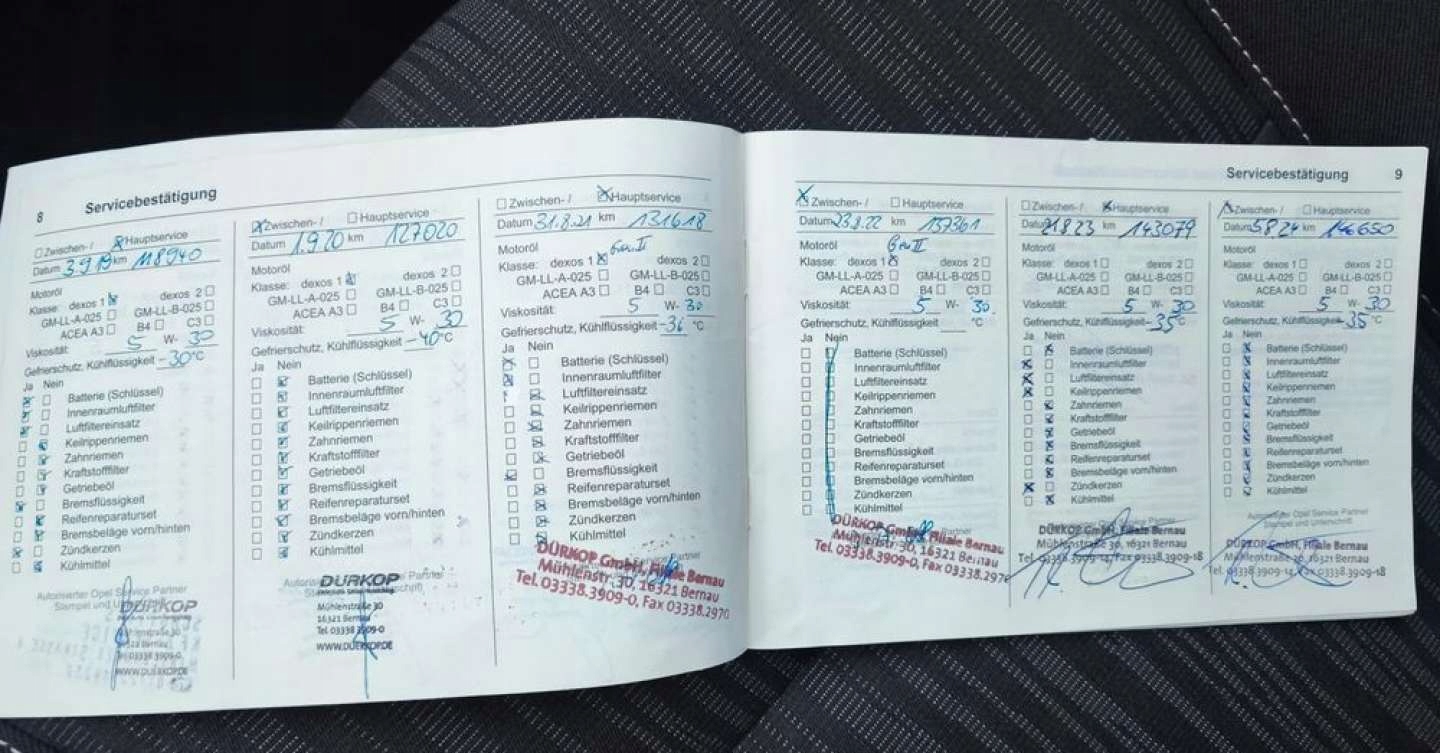 8 Servicebestätigung
Zwischen- / Hauptservice
Datum 3.9.19 km 118940
Motoröl
Klasse: dexos 1 dexos 2
GM-LL-A-025 GM-LL-B-025
ACEA A3 B4 C3
Viskosität: 5 W- 30
Gefrierschutz, Kühlflüssigkeit -30 °C
Ja Nein
Batterie (Schlüssel)
Innenraumluftfilter
Luftfiltereinsatz
Keilrippenriemen
Zahnriemen
Kraftstofffilter
Getriebeöl
Bremsflüssigkeit
Reifenreparaturset
Bremsbeläge vorn/hinten
Zündkerzen
Kühlmittel
Autorisierter Opel Service Partner
Stempel und
DÜRKOP
30
Bernau
03338 3909-0
WWW.DÜRKOP.DE
Zwischen- / Hauptservice
Datum 1.9.20 km 127020
Motoröl
Klasse: dexos 1 dexos 2
GM-LL-A-025 GM-LL-B-025
ACEA A3 B4 C3
Viskosität: 5 W- 30
Gefrierschutz, Kühlflüssigkeit -40 °C
Ja Nein
Batterie (Schlüssel)
Innenraumluftfilter
Luftfiltereinsatz
Keilrippenriemen
Zahnriemen
Kraftstofffilter
Getriebeöl
Bremsflüssigkeit
Reifenreparaturset
Bremsbeläge vorn/hinten
Zündkerzen
Kühlmittel
Partner
DÜRKOP
Mühlenstraße 30
16321 Bernau
Tel. 03338 3909-0
WWW.DÜRKOP.DE
Zwischen- / Hauptservice
Datum 31.8.21 km 131618
Motoröl Gen. II
Klasse: dexos 1 dexos 2
GM-LL-A-025 GM-LL-B-025
ACEA A3 B4 C3
Viskosität: 5 W- 30
Gefrierschutz, Kühlflüssigkeit -36 °C
Ja Nein
Batterie (Schlüssel)
Innenraumluftfilter
Luftfiltereinsatz
Keilrippenriemen
Zahnriemen
Kraftstofffilter
Getriebeöl
Bremsflüssigkeit
Reifenreparaturset
Bremsbeläge vorn/hinten
Zündkerzen
Kühlmittel
Partner
DÜRKOP GmbH, Filiale Bernau
Mühlenstr. 30, 16321 Bernau
Tel. 03338.3909-0, Fax 03338.2970
Servicebestätigung 9
Zwischen- / Hauptservice
Datum 23.8.22 km 137361
Motoröl Gen II
Klasse: dexos 1 dexos 2
GM-LL-A-025 GM-LL-B-025
ACEA A3 B4 C3
Viskosität: 5 W- 30
Gefrierschutz, Kühlflüssigkeit °C
Ja Nein
Batterie (Schlüssel)
Innenraumluftfilter
Luftfiltereinsatz
Keilrippenriemen
Zahnriemen
Kraftstofffilter
Getriebeöl
Bremsflüssigkeit
Reifenreparaturset
Bremsbeläge vorn/hinten
Zündkerzen
Kühlmittel
Partner
DÜRKOP GmbH, Filiale Bernau
Mühlenstr. 30, 16321 Bernau
Tel. 03338.3909-0, Fax 03338.2970
Zwischen- / Hauptservice
Datum 21.8.23 km 143079
Motoröl
Klasse: dexos 1 dexos 2
GM-LL-A-025 GM-LL-B-025
ACEA A3 B4 C3
Viskosität: 5 W- 30
Gefrierschutz, Kühlflüssigkeit -35 °C
Ja Nein
Batterie (Schlüssel)
Innenraumluftfilter
Luftfiltereinsatz
Keilrippenriemen
Zahnriemen
Kraftstofffilter
Getriebeöl
Bremsflüssigkeit
Reifenreparaturset
Bremsbeläge vorn/hinten
Zündkerzen
Kühlmittel
DÜRKOP GmbH, Filiale Bernau
Mühlenstraße 30, 16321 Bernau
Fax 03338.3909-18
Zwischen- / Hauptservice
Datum 5.8.24 km 146650
Motoröl
Klasse: dexos 1 dexos 2
GM-LL-A-025 GM-LL-B-025
ACEA A3 B4 C3
Viskosität: 5 W- 30
Gefrierschutz, Kühlflüssigkeit -35 °C
Ja Nein
Batterie (Schlüssel)
Innenraumluftfilter
Luftfiltereinsatz
Keilrippenriemen
Zahnriemen
Kraftstofffilter
Getriebeöl
Bremsflüssigkeit
Reifenreparaturset
Bremsbeläge vorn/hinten
Zündkerzen
Kühlmittel
Autorisierter Opel Service Partner
Stempel und Unterschrift
DÜRKOP GmbH, Filiale Bernau
Mühlenstraße 30, 16321 Bernau
Tel. 03338.3909-14, Fax 03338.3909-18